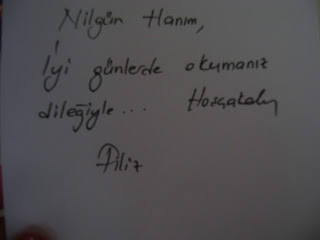 Nilgün Hanım,
İyi günlerde okumanız
dileğiyle... Hoşçakalın
Filiz